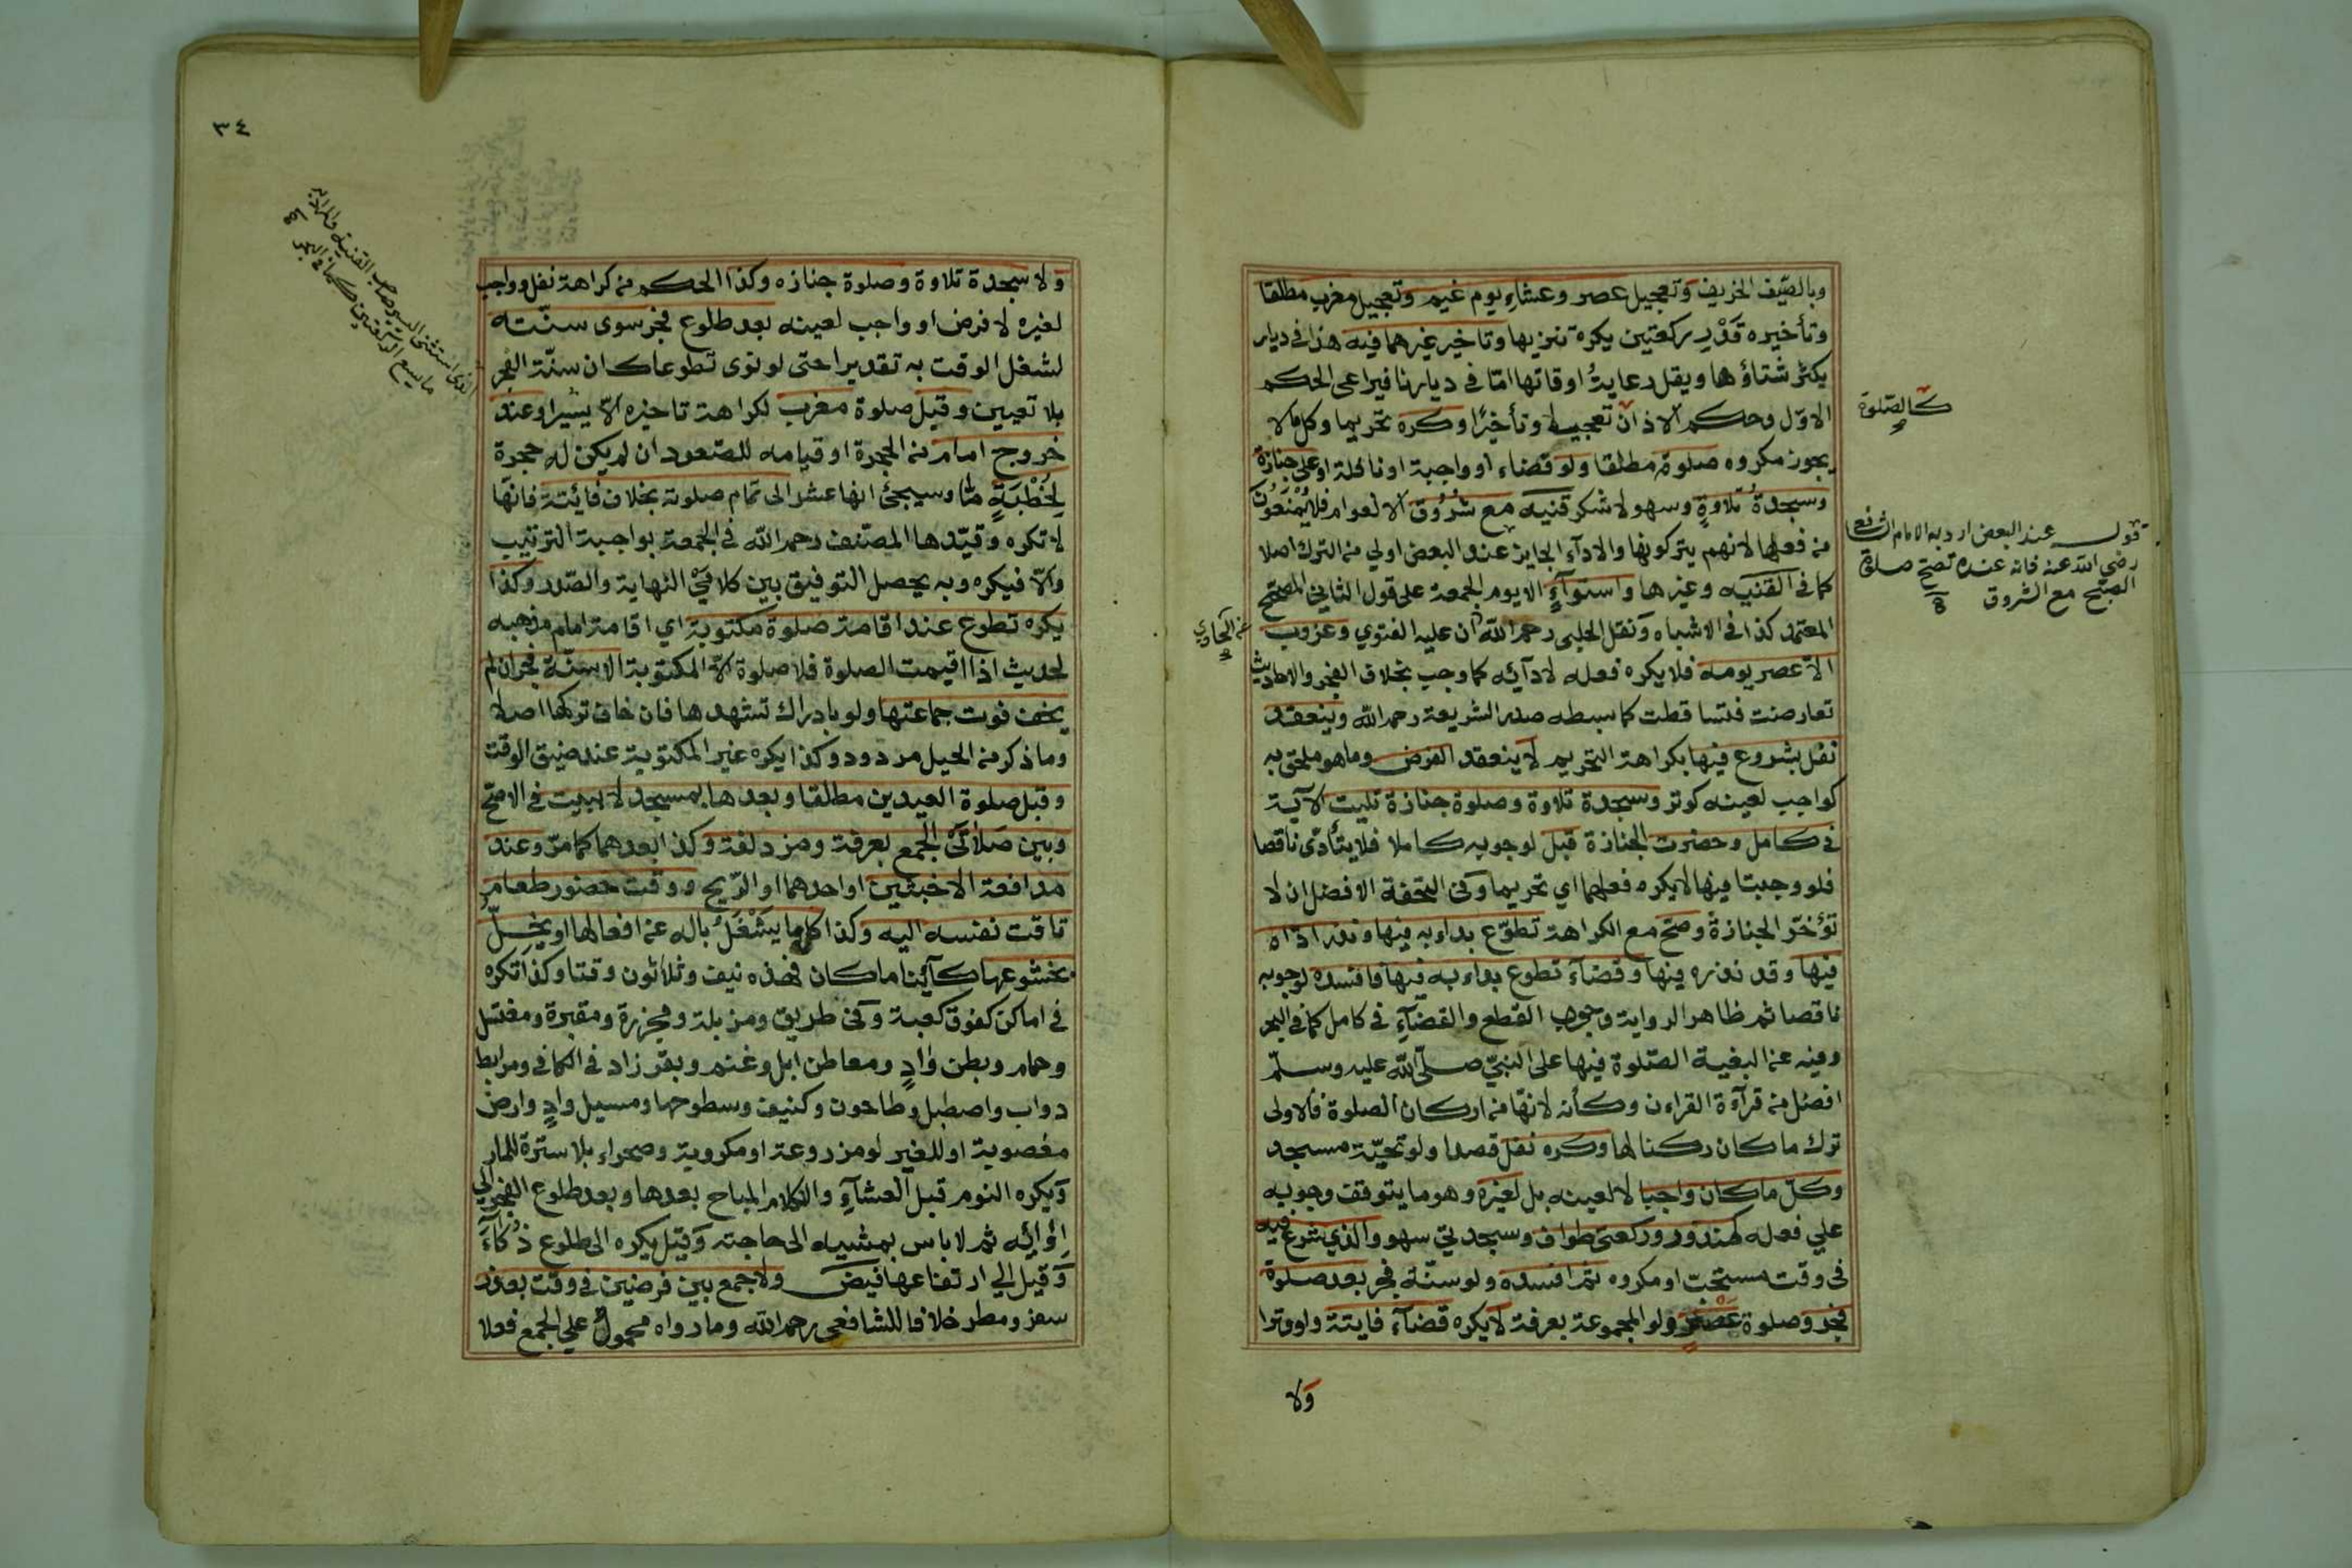 وبالصّيف الخريف وتعجيل عصر وعشاء يوم غيم وتعجيل مغرب مطلقا
وتأخيره قَدْر ركعتين يكره تنزيها وتاخير غيرهما فيه هذا في ديار
يكثر شتاؤها ويقل رعاية اوقاتها امّا في ديارنا فيراعى الحكم
الاوّل وحكم الاذان تعجيلا وتأخيرًا وكره تحريما وكل مالا
يجوز مكروه صلوة مطلقا ولو قضاء او واجبة او نافلة او على جنازة
وسجدةُ تلاوةٍ وسهو لا شكر قنيه مع شُرُوق الا لعوام فلا يُمْنَعُون
من فعلها لانهم يتركونها والادآء الجايز عند البعض اولي من الترك اصلا
كما في القنيه وغيرها واستوآءٍ الا يوم الجمعة على قول الثاني المصحّح
المعتمد كذا في الاشباه ونقل الحلبى رحمه الله ان عليه الفتوي وغروب
الا عصر يومه فلا يكره فعله لادآئه كما وجب بخلاف الفجر والاحاديث
تعارضت فتساقطت كما بسطه صدر الشريعة رحمه الله وينعقد
نفل بشروع فيها بكراهة التحريم لا ينعقد الفرض وما هو ملحق به
كواجب لعينه كوتر وسجدة تلاوة وصلوة جنازة تليت الآية
في كامل وحضرت الجنازة قبل لوجوبه كاملا فلا يتأدّى ناقصا
فلو وجبتا فيها لا يكره فعلهما اي تحريما وفى التحفة الافضل ان لا
تؤخّر الجنازة وصحّ مع الكراهة تطوّع بداء به فيها ونذر اداه
فيها وقد نذره فيها وقضآء تطوع بداء به فيها فافسده لوجوبه
ناقصا ثم ظاهر الرواية وجوب القطع والقضآء في كامل كما في البحر
وفيه عن البغية الصّلوة فيها على النبيّ صلّى الله عليه وسلّم
افضل من قرآءة القراءن وكأنه لانّها من اركان الصلوة فالاولى
ترك ما كان ركنا لها وكره نفل قصدا ولو تحيّة مسجد
وكلّ ما كان واجبا لا لعينه بل لغيره وهو ما يتوقف وجوبه
علي فعله كمنذور وركعتى طواف وسجدتي سهو والذي شرع فيه
فى وقت مستحبّ او مكروه ثم افسده ولو سنّة فجر بعد صلوة
فجر وصلوة عصر ولو المجموعة بعرفة لا يكره قضآء فايتة ولو وترا
ولا
كالصّلوة
قوله عند البعض اراد به الامام الشافعي
رضي الله عنه فانه عنده تصح صلوة
الصبح مع الشروق
عن الحاوي
٣٤
ولا سجدة تلاوة وصلوة جنازه وكذا الحكم من كراهة نفل وواجب
لغيره لا فرض او واجب لعينه بعد طلوع فجر سوى سنّته
لشغل الوقت به تقديرا حتى لو نوى تطوعا كان سنّة الفجر
بلا تعيين وقبل صلوة مغرب لكراهة تاخيره الّا يسيرا وعند
خروج امام من الحجرة او قيامه للصّعود ان لم يكن له حجرة
لِخُطْبَةٍ مّا وسيجئ انها عشر الى تمام صلوته بخلاف فائتة فانّها
لا تكره وقيّدها المصنف رحمه الله في الجمعة بواجبة الترتيب
والّا فيكره وبه يحصل التوفيق بين كلامَيْ النهاية والصّدر وكذا
يكره تطوع عند اقامة صلوة مكتوبة اي اقامة امام مذهبه
لحديث اذا اقيمت الصلوة فلا صلوة الا المكتوبة الا سنّة فجر ان لم
يخف فوت جماعتها ولو بادراك تشهدها فان خاف تركها اصلا
وما ذكر من الحيل مردود وكذا يكره غير المكتوبة عند ضيق الوقت
وقبل صلوة العيدين مطلقا وبعدها بمسجد لا ببيت في الاصحّ
وبين صَلاتَىْ الجمع بعرفة ومزدلفة وكذا بعدهما كما مرّ وعند
مدافعة الاخبثين او احدهما او الرّيح ووقت حضور طعام
تاقت نفسه اليه وكذا كل ما يَشْغَلُ باله عن افعالها او يخلّ
بخشوعها كآئنا ما كان فهذه نيف وثلاثون وقتا وكذا تكره
في اماكن كفوق كعبة وفى طريق ومزبلة ومجزرة ومقبرة ومغتسل
وحمام وبطن وادٍ ومعاطن ابل وغنم وبقر زاد في الكافي ومرابط
دواب واصطبل وطاحون وكنيف وسطوحها ومسيل وادٍ وارض
مغصوبة او للغير لو مزروعة او مكروبة وصحراء بلا سترة للمار
ويكره النوم قبل العشآء والكلام المباح بعدها وبعد طلوع الفجر الى
ادآئه ثم لا باس بمشيه الى حاجته وقيل يكره الى طلوع ذُكآءَ
وقيل الي ارتفاعها فيض ولا جمع بين فرضين في وقت بعذر
سفر ومطر خلافا للشافعى رحمه الله وما رواه محمول علي الجمع فعلا